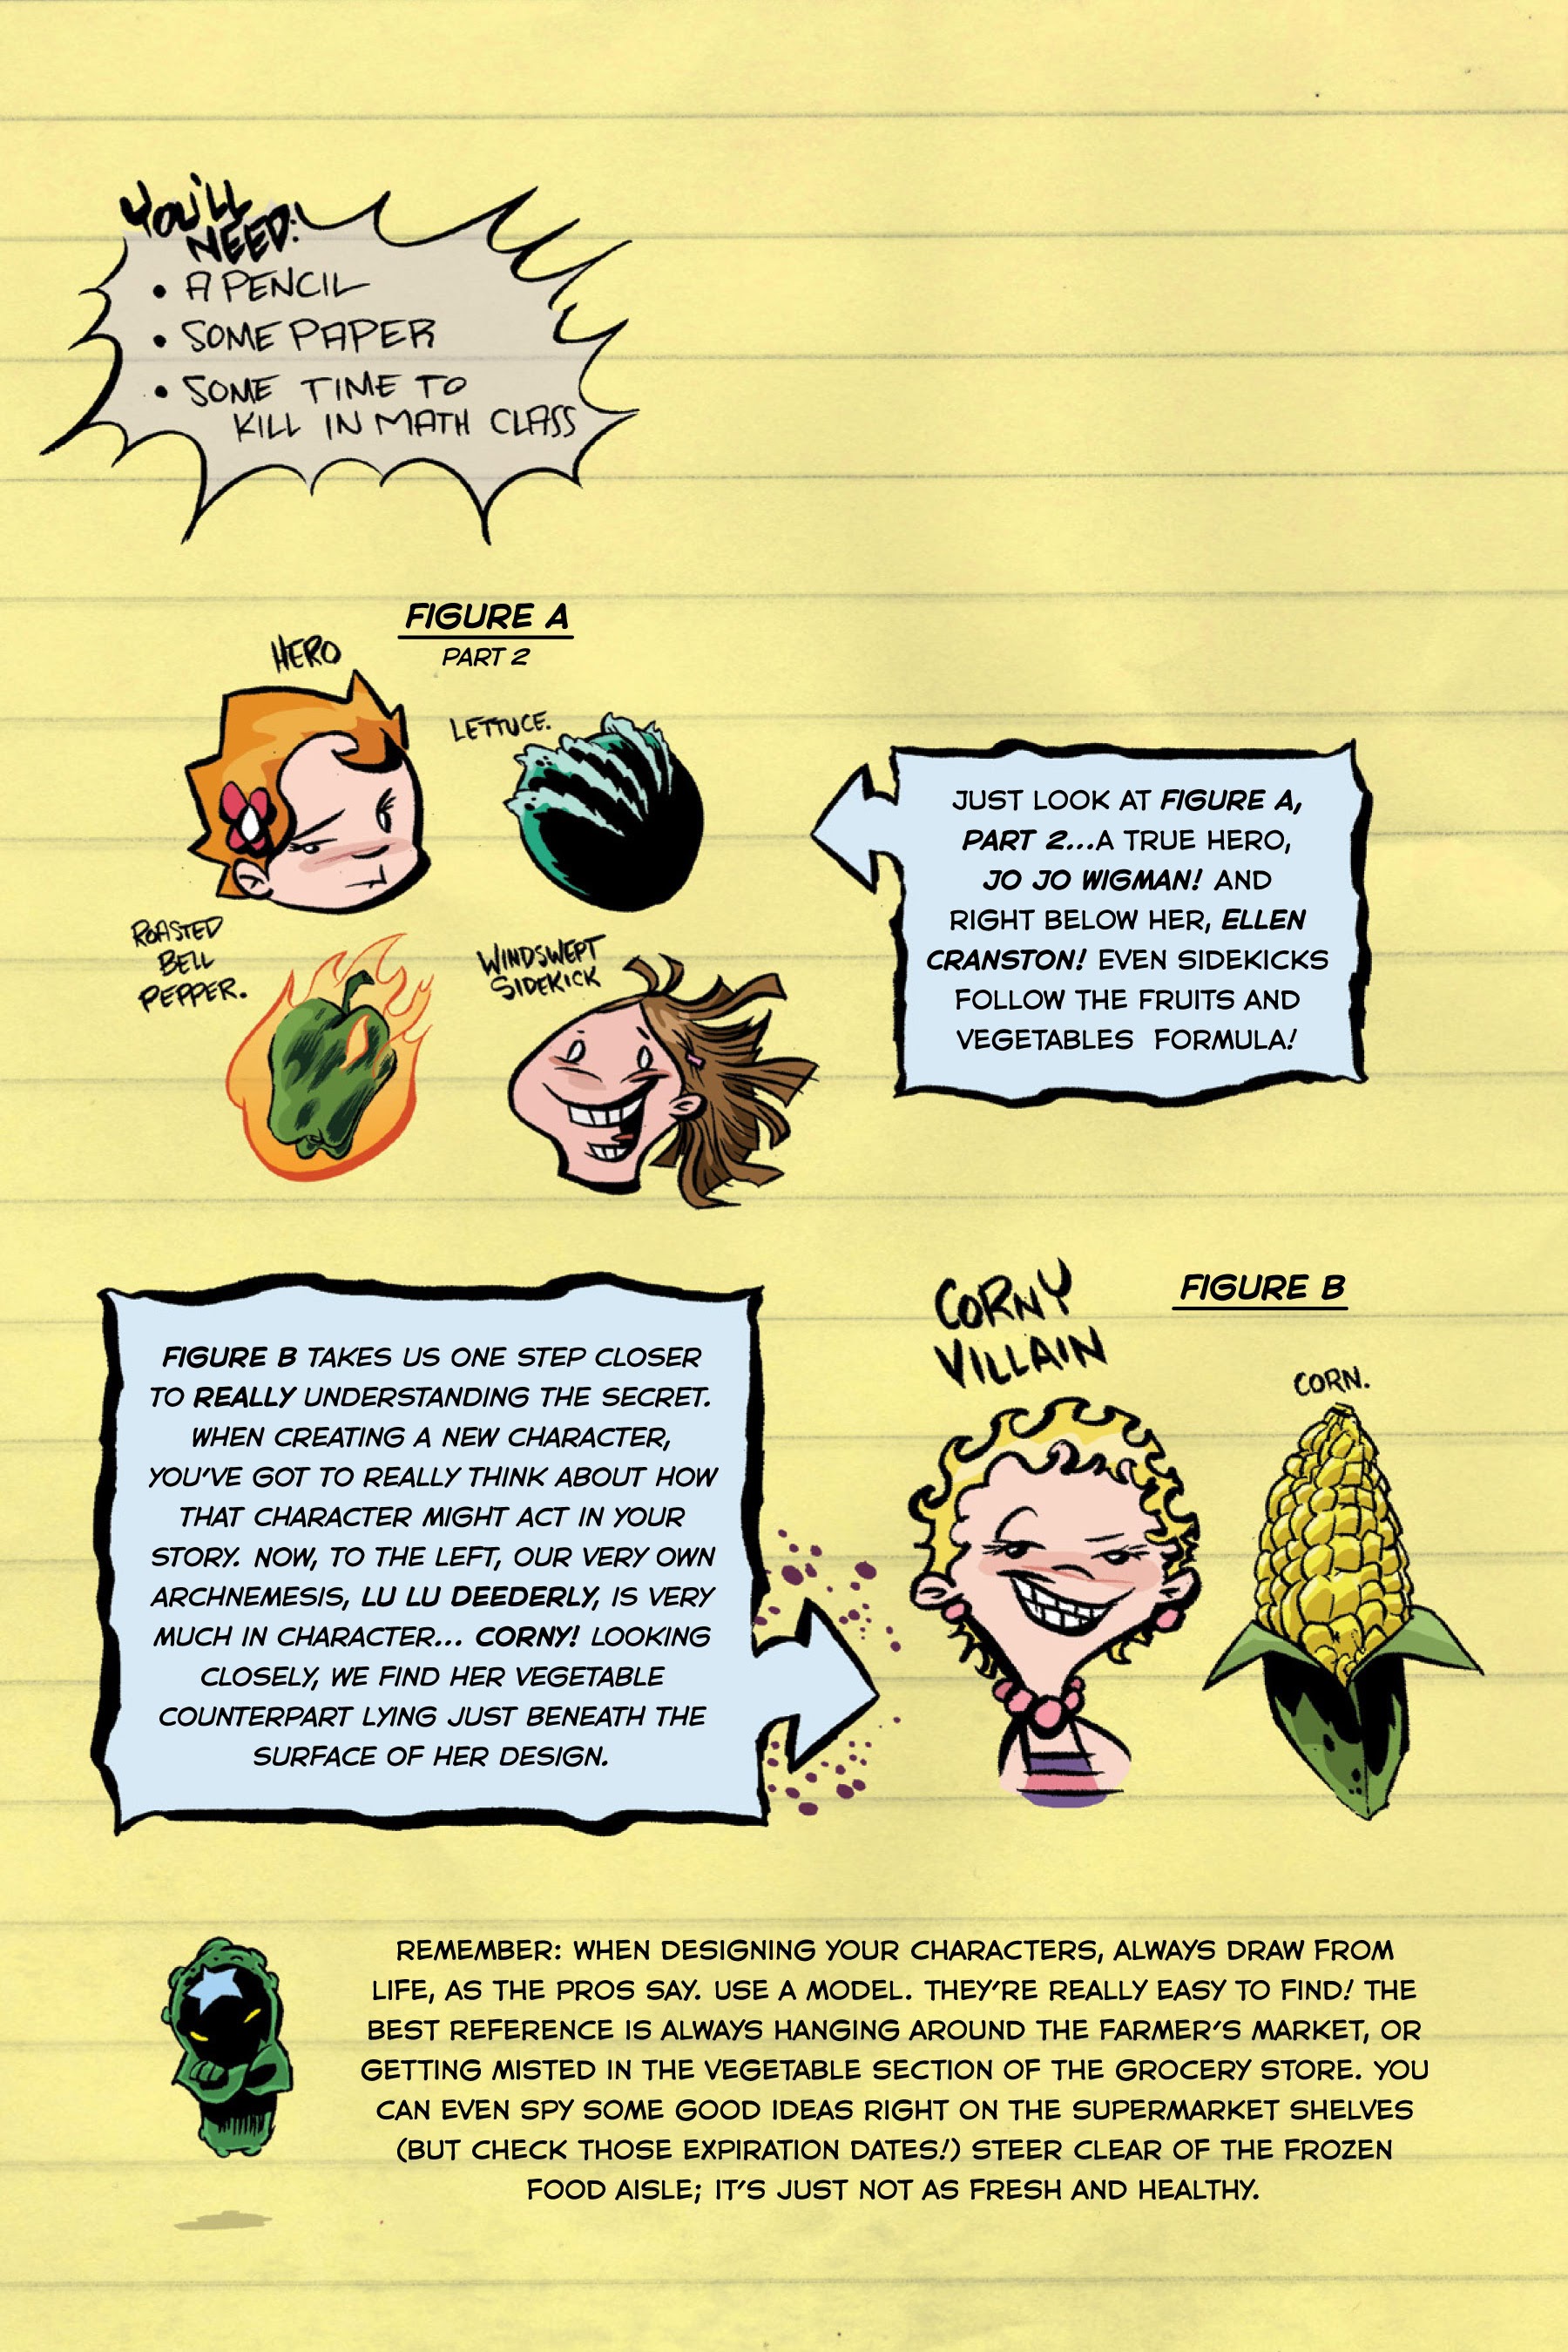 YOU'LL
NEED:
• A PENCIL
• SOME PAPER
• SOME TIME TO
KILL IN MATH CLASS
FIGURE A
PART 2
HERO
LETTUCE.
ROASTED
BELL
PEPPER.
WINDSWEPT
SIDEKICK
JUST LOOK AT FIGURE A,
PART 2...A TRUE HERO,
JO JO WIGMAN! AND
RIGHT BELOW HER, ELLEN
CRANSTON! EVEN SIDEKICKS
FOLLOW THE FRUITS AND
VEGETABLES FORMULA!
FIGURE B TAKES US ONE STEP CLOSER
TO REALLY UNDERSTANDING THE SECRET.
WHEN CREATING A NEW CHARACTER,
YOU'VE GOT TO REALLY THINK ABOUT HOW
THAT CHARACTER MIGHT ACT IN YOUR
STORY. NOW, TO THE LEFT, OUR VERY OWN
ARCHNEMESIS, LU LU DEEDERLY, IS VERY
MUCH IN CHARACTER... CORNY! LOOKING
CLOSELY, WE FIND HER VEGETABLE
COUNTERPART LYING JUST BENEATH THE
SURFACE OF HER DESIGN.
CORNY
VILLAIN
FIGURE B
CORN.
REMEMBER: WHEN DESIGNING YOUR CHARACTERS, ALWAYS DRAW FROM
LIFE, AS THE PROS SAY. USE A MODEL. THEY'RE REALLY EASY TO FIND! THE
BEST REFERENCE IS ALWAYS HANGING AROUND THE FARMER'S MARKET, OR
GETTING MISTED IN THE VEGETABLE SECTION OF THE GROCERY STORE. YOU
CAN EVEN SPY SOME GOOD IDEAS RIGHT ON THE SUPERMARKET SHELVES
(BUT CHECK THOSE EXPIRATION DATES!) STEER CLEAR OF THE FROZEN
FOOD AISLE; IT'S JUST NOT AS FRESH AND HEALTHY.